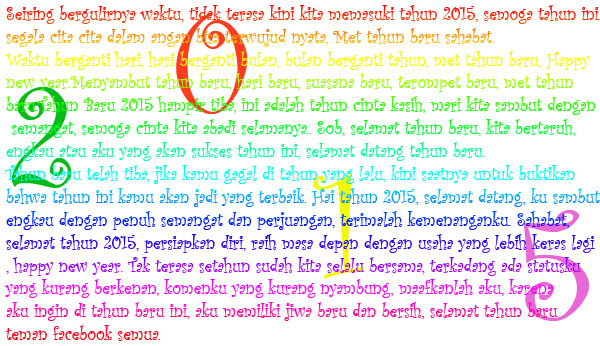 Seiring bergulirnya waktu, tidak terasa kini kita memasuki tahun 2015, semoga tahun ini
segala cita cita dalam angan bisa terwujud nyata, Met tahun baru sahabat.
Waktu berganti hari, hari berganti bulan, bulan berganti tahun, met tahun baru, Happy
new year.Menyambut tahun baru, hari baru, suasana baru, terompet baru, met tahun
baru.Tahun Baru 2015 hampir tiba, ini adalah tahun cinta kasih, mari kita sambut dengan
semangat, semoga cinta kita abadi selamanya. Sob, selamat tahun baru, kita bertaruh,
engkau atau aku yang akan sukses tahun ini, selamat datang tahun baru.
Tahun baru telah tiba, jika kamu gagal di tahun yang lalu, kini saatnya untuk buktikan
bahwa tahun ini kamu akan jadi yang terbaik. Hai tahun 2015, selamat datang, ku sambut
engkau dengan penuh semangat dan perjuangan, terimalah kemenanganku. Sahabat,
selamat tahun 2015, persiapkan diri, raih masa depan dengan usaha yang lebih keras lagi
, happy new year. Tak terasa setahun sudah kita selalu bersama, terkadang ada statusku
yang kurang berkenan, komenku yang kurang nyambung, maafkanlah aku, karena
aku ingin di tahun baru ini, aku memiliki jiwa baru dan bersih, selamat tahun baru
teman facebook semua.
2 0 1 5